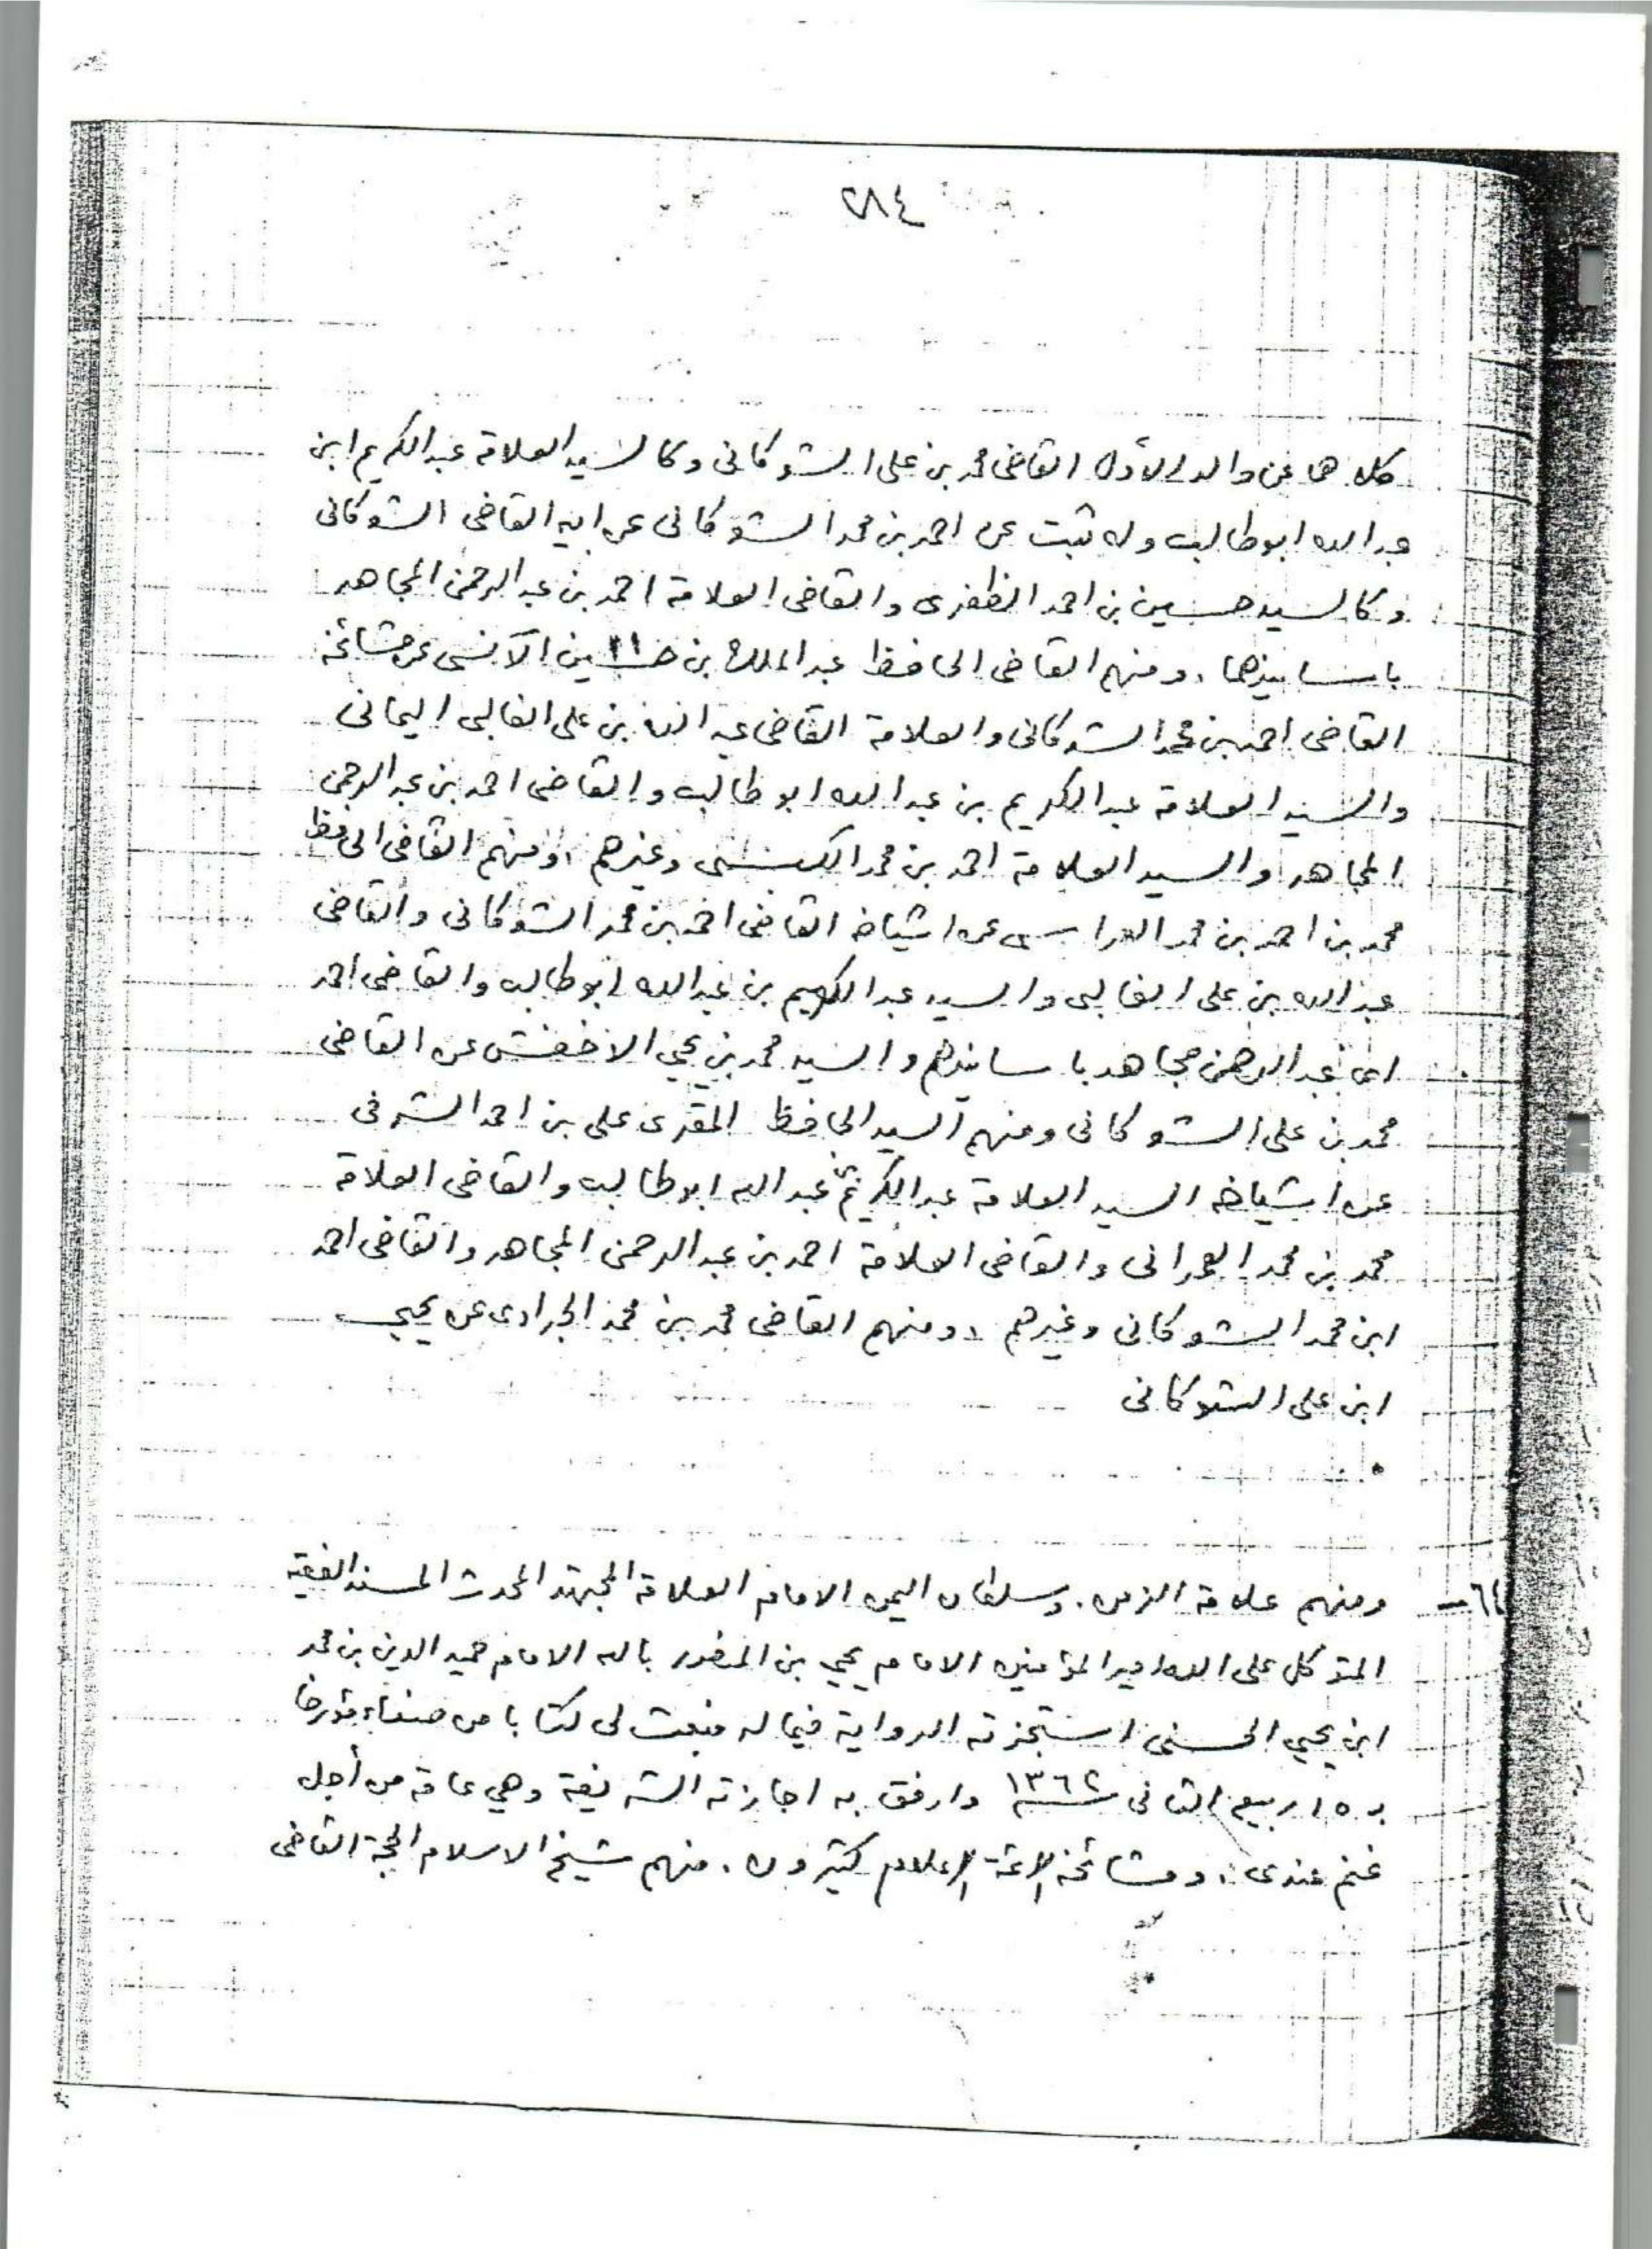 ٢٨٤
كلاهما عن والد الأول القاضى محمد بن على الشوكانى وكالسيد العلامة عبد الكريم ابن
عبد الله ابو طالب وله ثبت عن احمد بن محمد الشوكانى عن ابيه القاضى الشوكانى
وكالسيد حسين بن احمد الظفرى والقاضى العلامة احمد بن عبد الرحمن المجاهد
باسانيدهما، ومنهم القاضى الحافظ عبد الملك بن حسين الآنسى عن مشائخه
القاضى احمد بن محمد الشوكانى والعلامة القاضى عبد الله بن على الغالبى اليمانى
والسيد العلامة عبد الكريم بن عبد الله ابو طالب والقاضى احمد بن عبد الرحمن
المجاهد والسيد العلامة احمد بن محمد الكبسى وغيرهم، ومنهم القاضى الحافظ
محمد بن احمد بن محمد العراسى عن اشياخه القاضى احمد بن محمد الشوكانى والقاضى
عبد الله بن على الغالبى والسيد عبد الكريم بن عبد الله ابو طالب والقاضى احمد
ابن عبد الرحمن مجاهد باسانيدهم والسيد محمد بن يحيى الاخفش عن القاضى
محمد بن على الشوكانى ومنهم السيد الحافظ المقرى على بن احمد الشرفى
عن اشياخه السيد العلامة عبد الكريم بن عبد الله ابو طالب والقاضى العلامة
محمد بن محمد العمرانى والقاضى العلامة احمد بن عبد الرحمن المجاهد والقاضى احمد
ابن محمد الشوكانى وغيرهم، ومنهم القاضى محمد بن محمد الجرادى عن يحيى
ابن على الشوكانى
ومنهم علامة الزمن. وسلطان اليمن الامام العلامة المجتهد المحدث المسند الفقيه
المتوكل على الله امير المؤمنين الامام يحيى بن المنصور بالله الامام حميد الدين بن محمد
ابن يحيى الحسنى استجزته الرواية فيما له فبعث لى كتابا من صنعاء مؤرخا
بـ ١٥ ربيع الثانى سنة ١٣٦٢ وارفق به اجازته الشريفة وهي عامة من أجل
غنم عندى، ومشائخه الائمة الاعلام كثيرون. منهم شيخ الاسلام الحجة القاضى